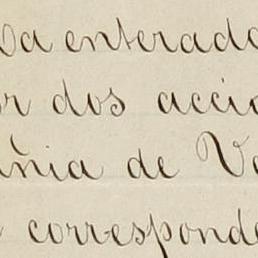 va enterado
r dos accio
añia de Va
corresponde